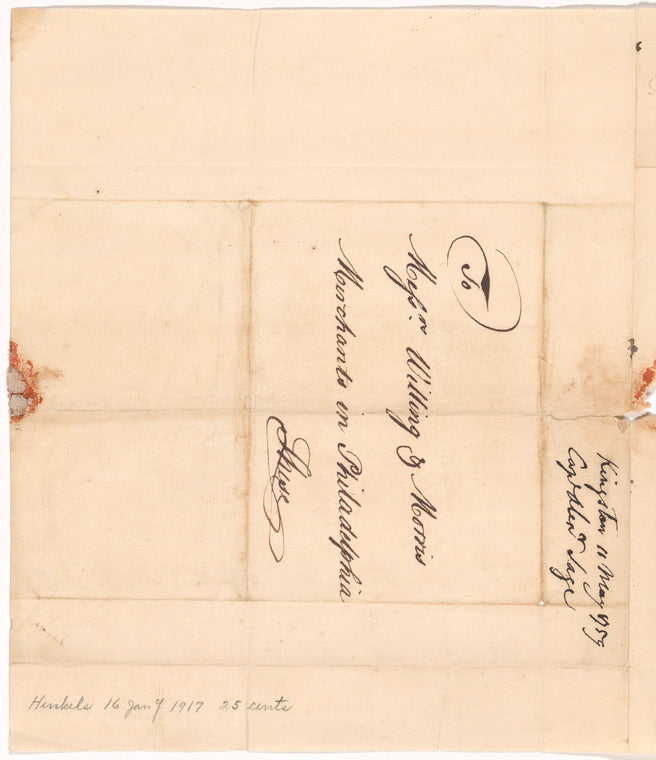 To
Messrs. Willing & Morris
Merchants in Philadelphia
Kingston 11 May 1759
Henkels 16 Jany 1917 25 cents